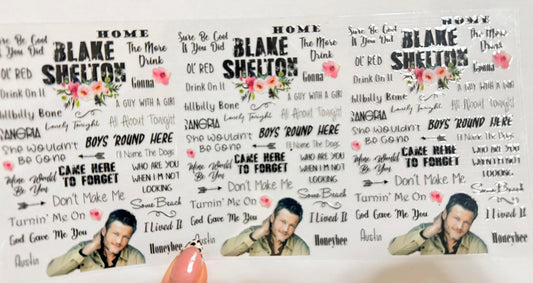 HOME
Sure Be Cool
If You Did
BLAKE
SHELTON
The More
Drink
OL' RED
Gonna
Drink On It
Hillbilly Bone
A GUY WITH A GIRL
Lonely Tonight
All About Tonight
SANGRIA
She Wouldn't
Be Gone
BOYS 'ROUND HERE
I'll Name The Dogs
Mine Would
Be You
CAME HERE
TO FORGET
WHO ARE YOU
WHEN I'M NOT
LOOKING
Don't Make Me
Some Beach
Turnin' Me On
I Lived It
God Gave Me You
Austin
Honeybee
HOME
Sure Be Cool
If You Did
BLAKE
SHELTON
The More
Drink
OL' RED
Gonna
Drink On It
Hillbilly Bone
A GUY WITH A GIRL
Lonely Tonight
All About Tonight
SANGRIA
She Wouldn't
Be Gone
BOYS 'ROUND HERE
I'll Name The Dogs
Mine Would
Be You
CAME HERE
TO FORGET
WHO ARE YOU
WHEN I'M NOT
LOOKING
Don't Make Me
Some Beach
Turnin' Me On
I Lived It
God Gave Me You
Austin
Honeybee
HOME
Sure Be Cool
If You Did
BLAKE
SHELTON
The More
Drink
OL' RED
Gonna
Drink On It
Hillbilly Bone
A GUY WITH A GIRL
Lonely Tonight
All About Tonight
SANGRIA
She Wouldn't
Be Gone
BOYS 'ROUND HERE
I'll Name The Dogs
Mine Would
Be You
CAME HERE
TO FORGET
WHO ARE YOU
WHEN I'M NOT
LOOKING
Don't Make Me
Some Beach
Turnin' Me On
I Lived It
God Gave Me You
Austin
Honeybee